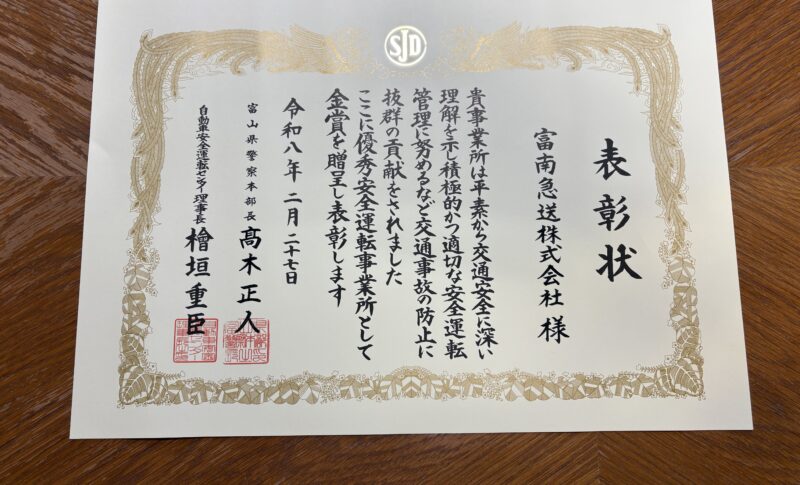 SJD
表彰状
富南急送株式会社 様
貴事業所は平素から交通安全に深い
理解を示し積極的かつ適切な安全運転
管理に努めるなど交通事故の防止に
抜群の貢献をされました
ここに優秀安全運転事業所として
金賞を贈呈し表彰します
令和八年二月二十七日
富山県警察本部長 髙木正人
自動車安全運転センター理事長 檜垣重臣